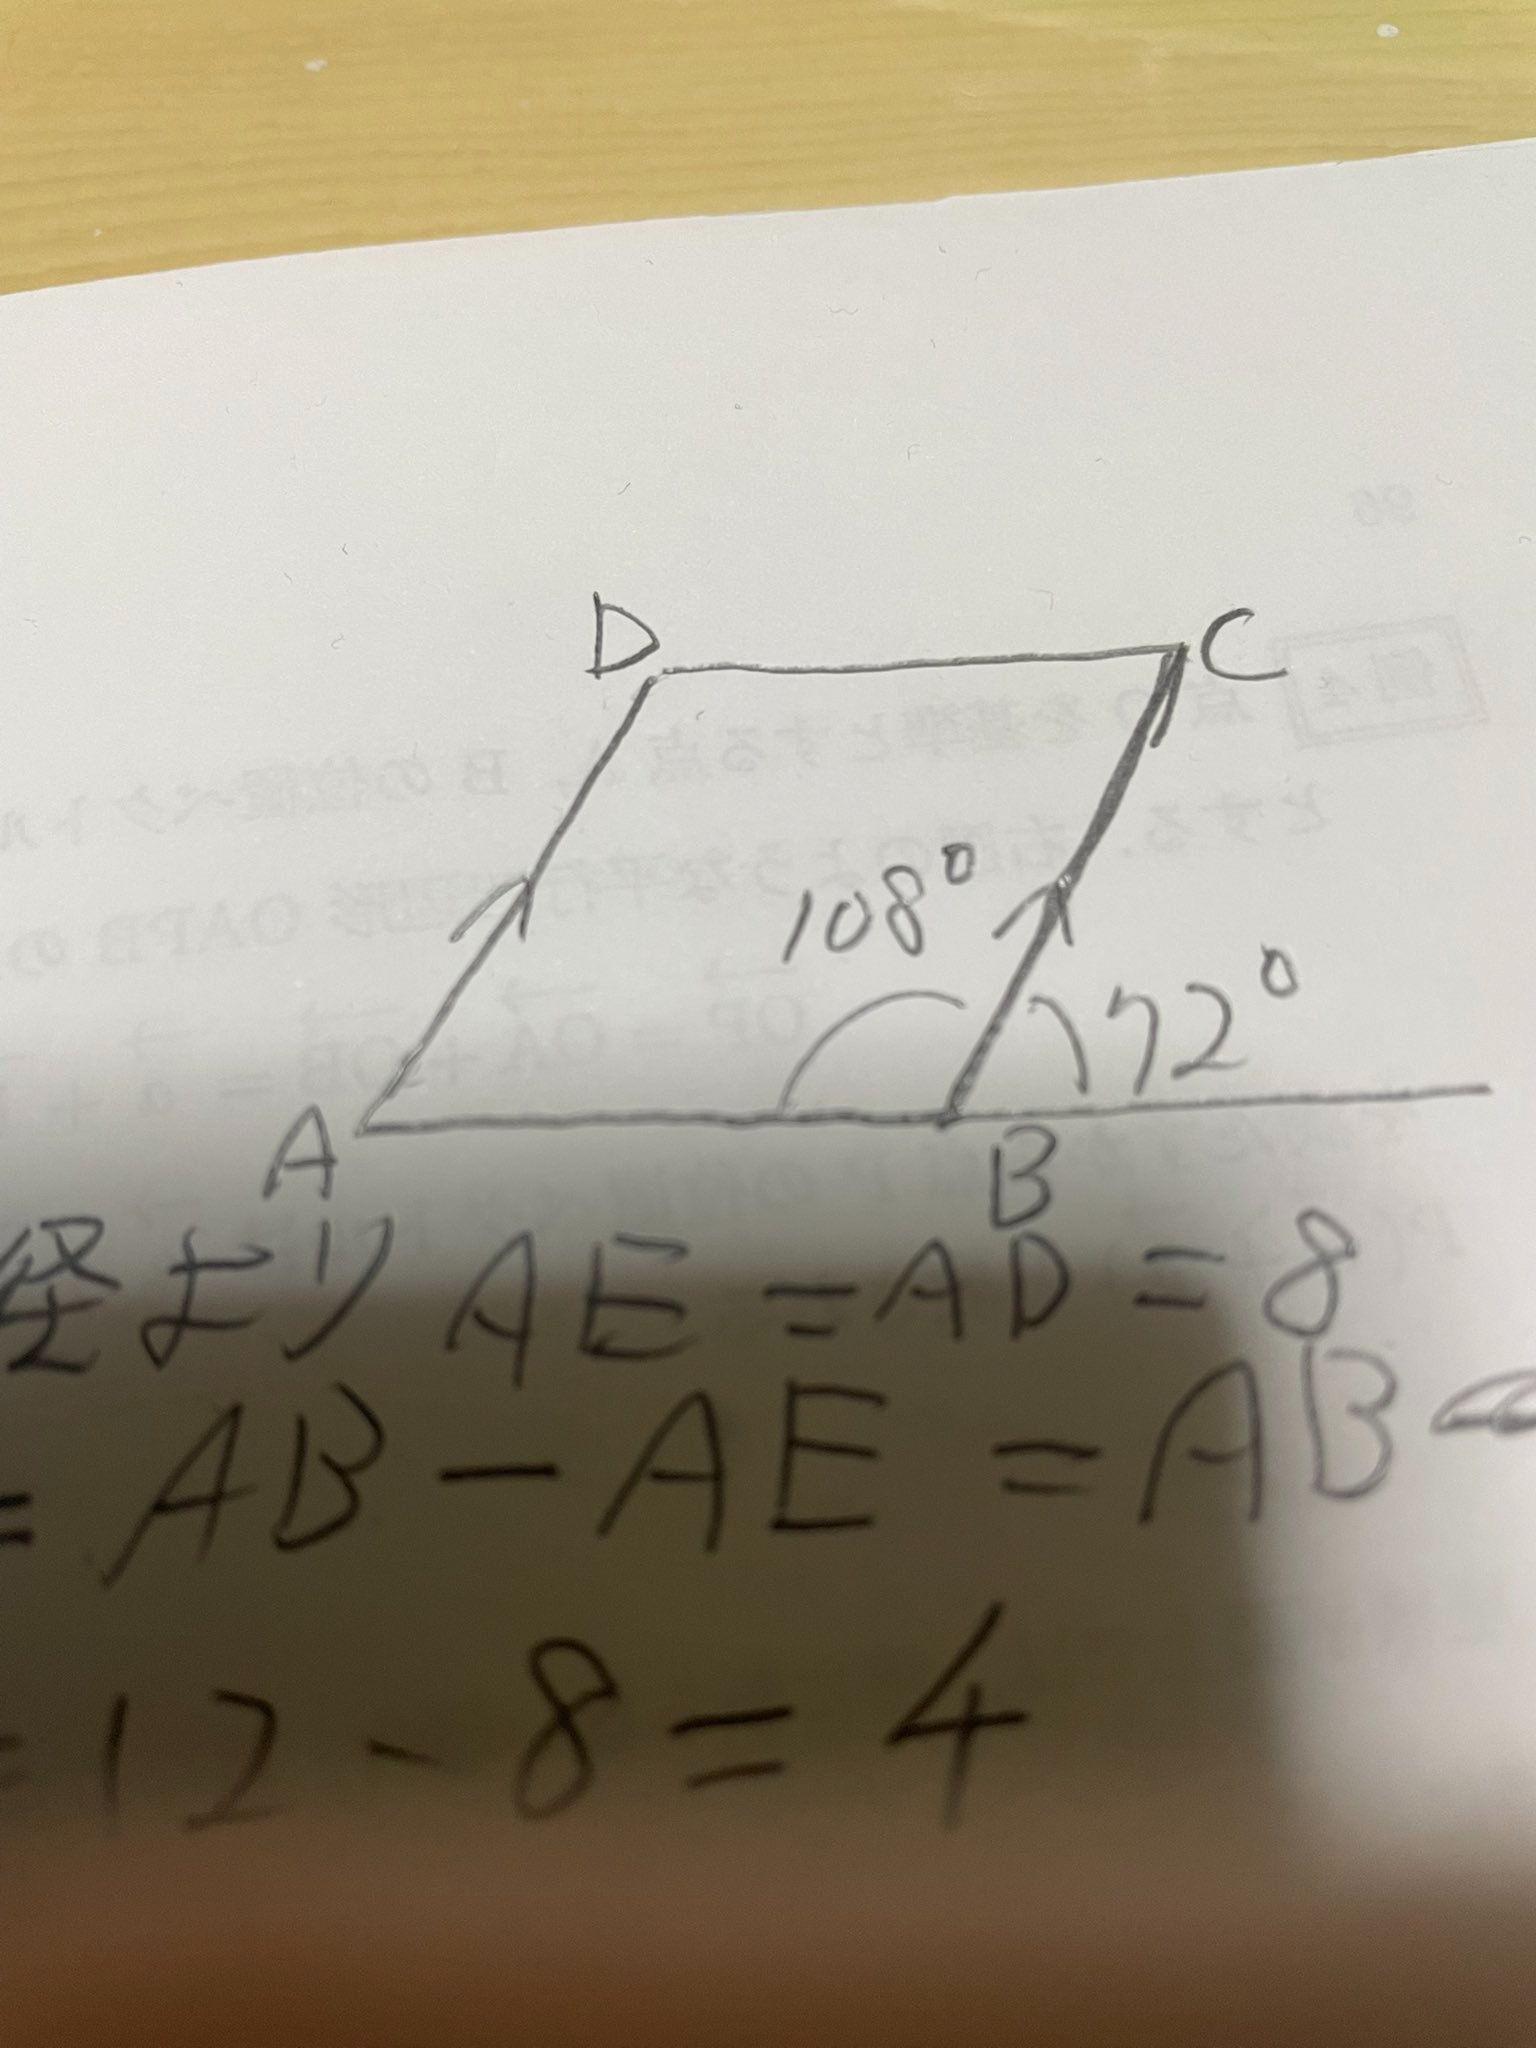 D
C
108°
72°
A
B
径より AE = AD = 8
= AB - AE = AB -
= 12 - 8 = 4